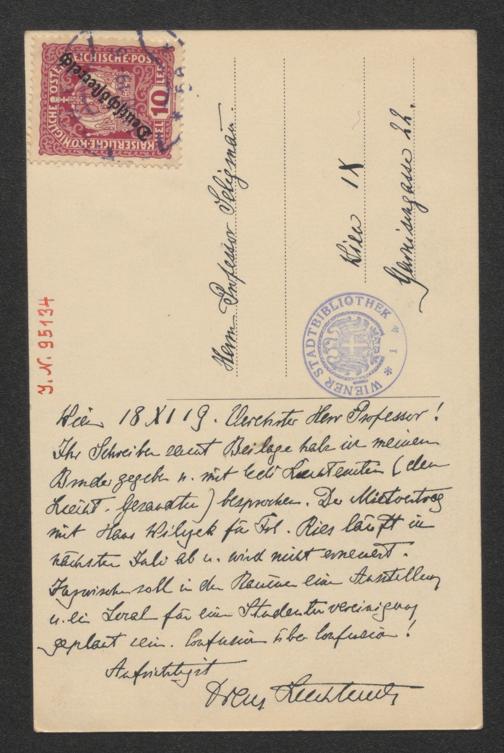 KAISERLICHE KÖNIGLICHE ÖSTERREICHISCHE POST
10 HELLER
Deutschösterreich
Herrn Professor Seligmann
Wien IX
Garnisongasse 22.
WIENER STADTBIBLIOTHEK * 1 *
J. N. 95134
Wien 18 XI 19. Verehrter Herr Professor!
Ihr Schreiben samt Beilage habe ich meinem
Bruder gegeben u. mit Edi Liechtenstein (dem
Liecht. Gesandten) besprochen. Der Mietvertrag
mit Haus Wilczek für Frl. Ries läuft im
nächsten Juli ab u. wird nicht erneuert.
Inzwischen soll in den Räumen eine Ausstellung
u. ein Local für eine Studentenvereinigung
geplant sein. Confusion über Confusion!
Aufrichtigst
Franz Liechtenstein